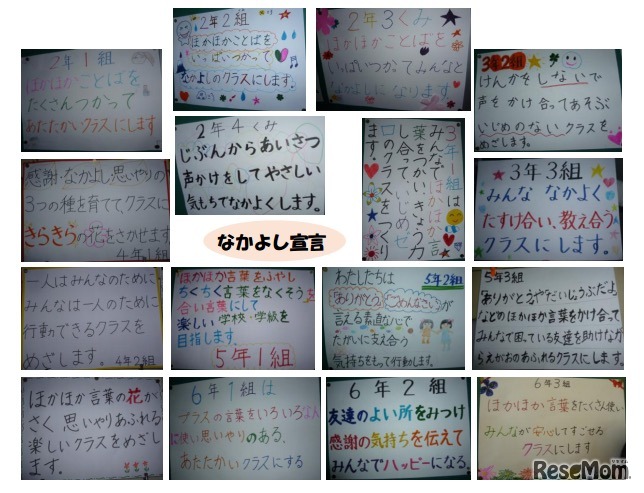 2年1組
ほかほかことばを
たくさんつかって
あたたかいクラスにします。
2年2組
ほかほかことばを
いっぱいつかって
なかよしのクラスにします。
2年3くみ
ほかほかことばを
いっぱいつかってみんなと
なかよしになります
3年2組
けんかをしないで
声をかけ合ってあそぶ
いじめのないクラスを
めざします。
感謝・なかよし・思いやりの
3つの種を育てて、クラスに
きらきらの花をさかせます
4年1組
2年4くみ
じぶんからあいさつ
声かけをしてやさしい
気もちでなかよくします。
3年1組は
みんなでほかほか言
葉をつかいきょう力
し合っていじめゼ
ロのクラスをつくり
ます!
3年3組
みんな なかよく
たすけ合い、教え合う
クラスにします。
なかよし宣言
一人はみんなのために
みんなは一人のために
行動できるクラスを
めざします。 4年2組
ほかほか言葉をふやし
ちくちく言葉をなくそうを
合い言葉にして
楽しい学校・学級を
目指します。
5年1組
わたしたちは 5年2組
ありがとう、ごめんなさいが
言える素直な心で
たがいに支え合う
気持ちをもって行動します。
5年3組
ありがとうやだいじょうぶだよ
などのほかほか言葉をかけ合って
みんなで困っている友達を助けなが
らえがおのあふれるクラスにします。
ほかほか言葉の花が
さく 思いやりあふれる
楽しいクラスをめざし
ます。
6年1組は
プラスの言葉をいろいろな人
に使い思いやりのある、
あたたかいクラスにする
6年2組
友達のよい所をみつけ
感謝の気持ちを伝えて
みんなでハッピーになる。
6年3組
ほかほか言葉をたくさん使い
みんなが安心してすごせる
クラスにします
ReseMom